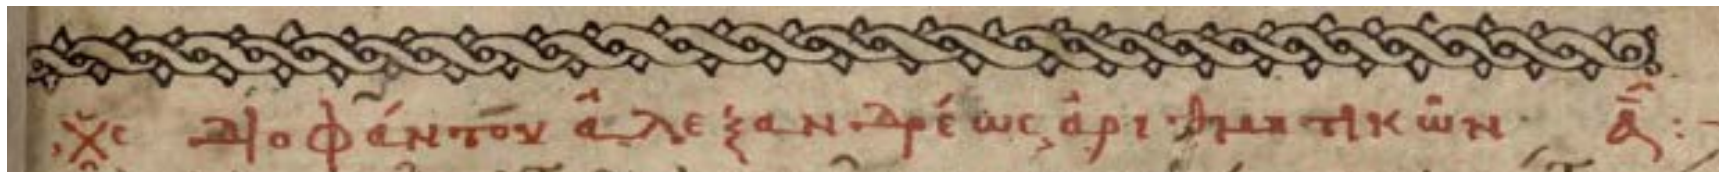 χε Διοφάντου ἀλεξανδρέως ἀριθμητικῶν ᾱ :-